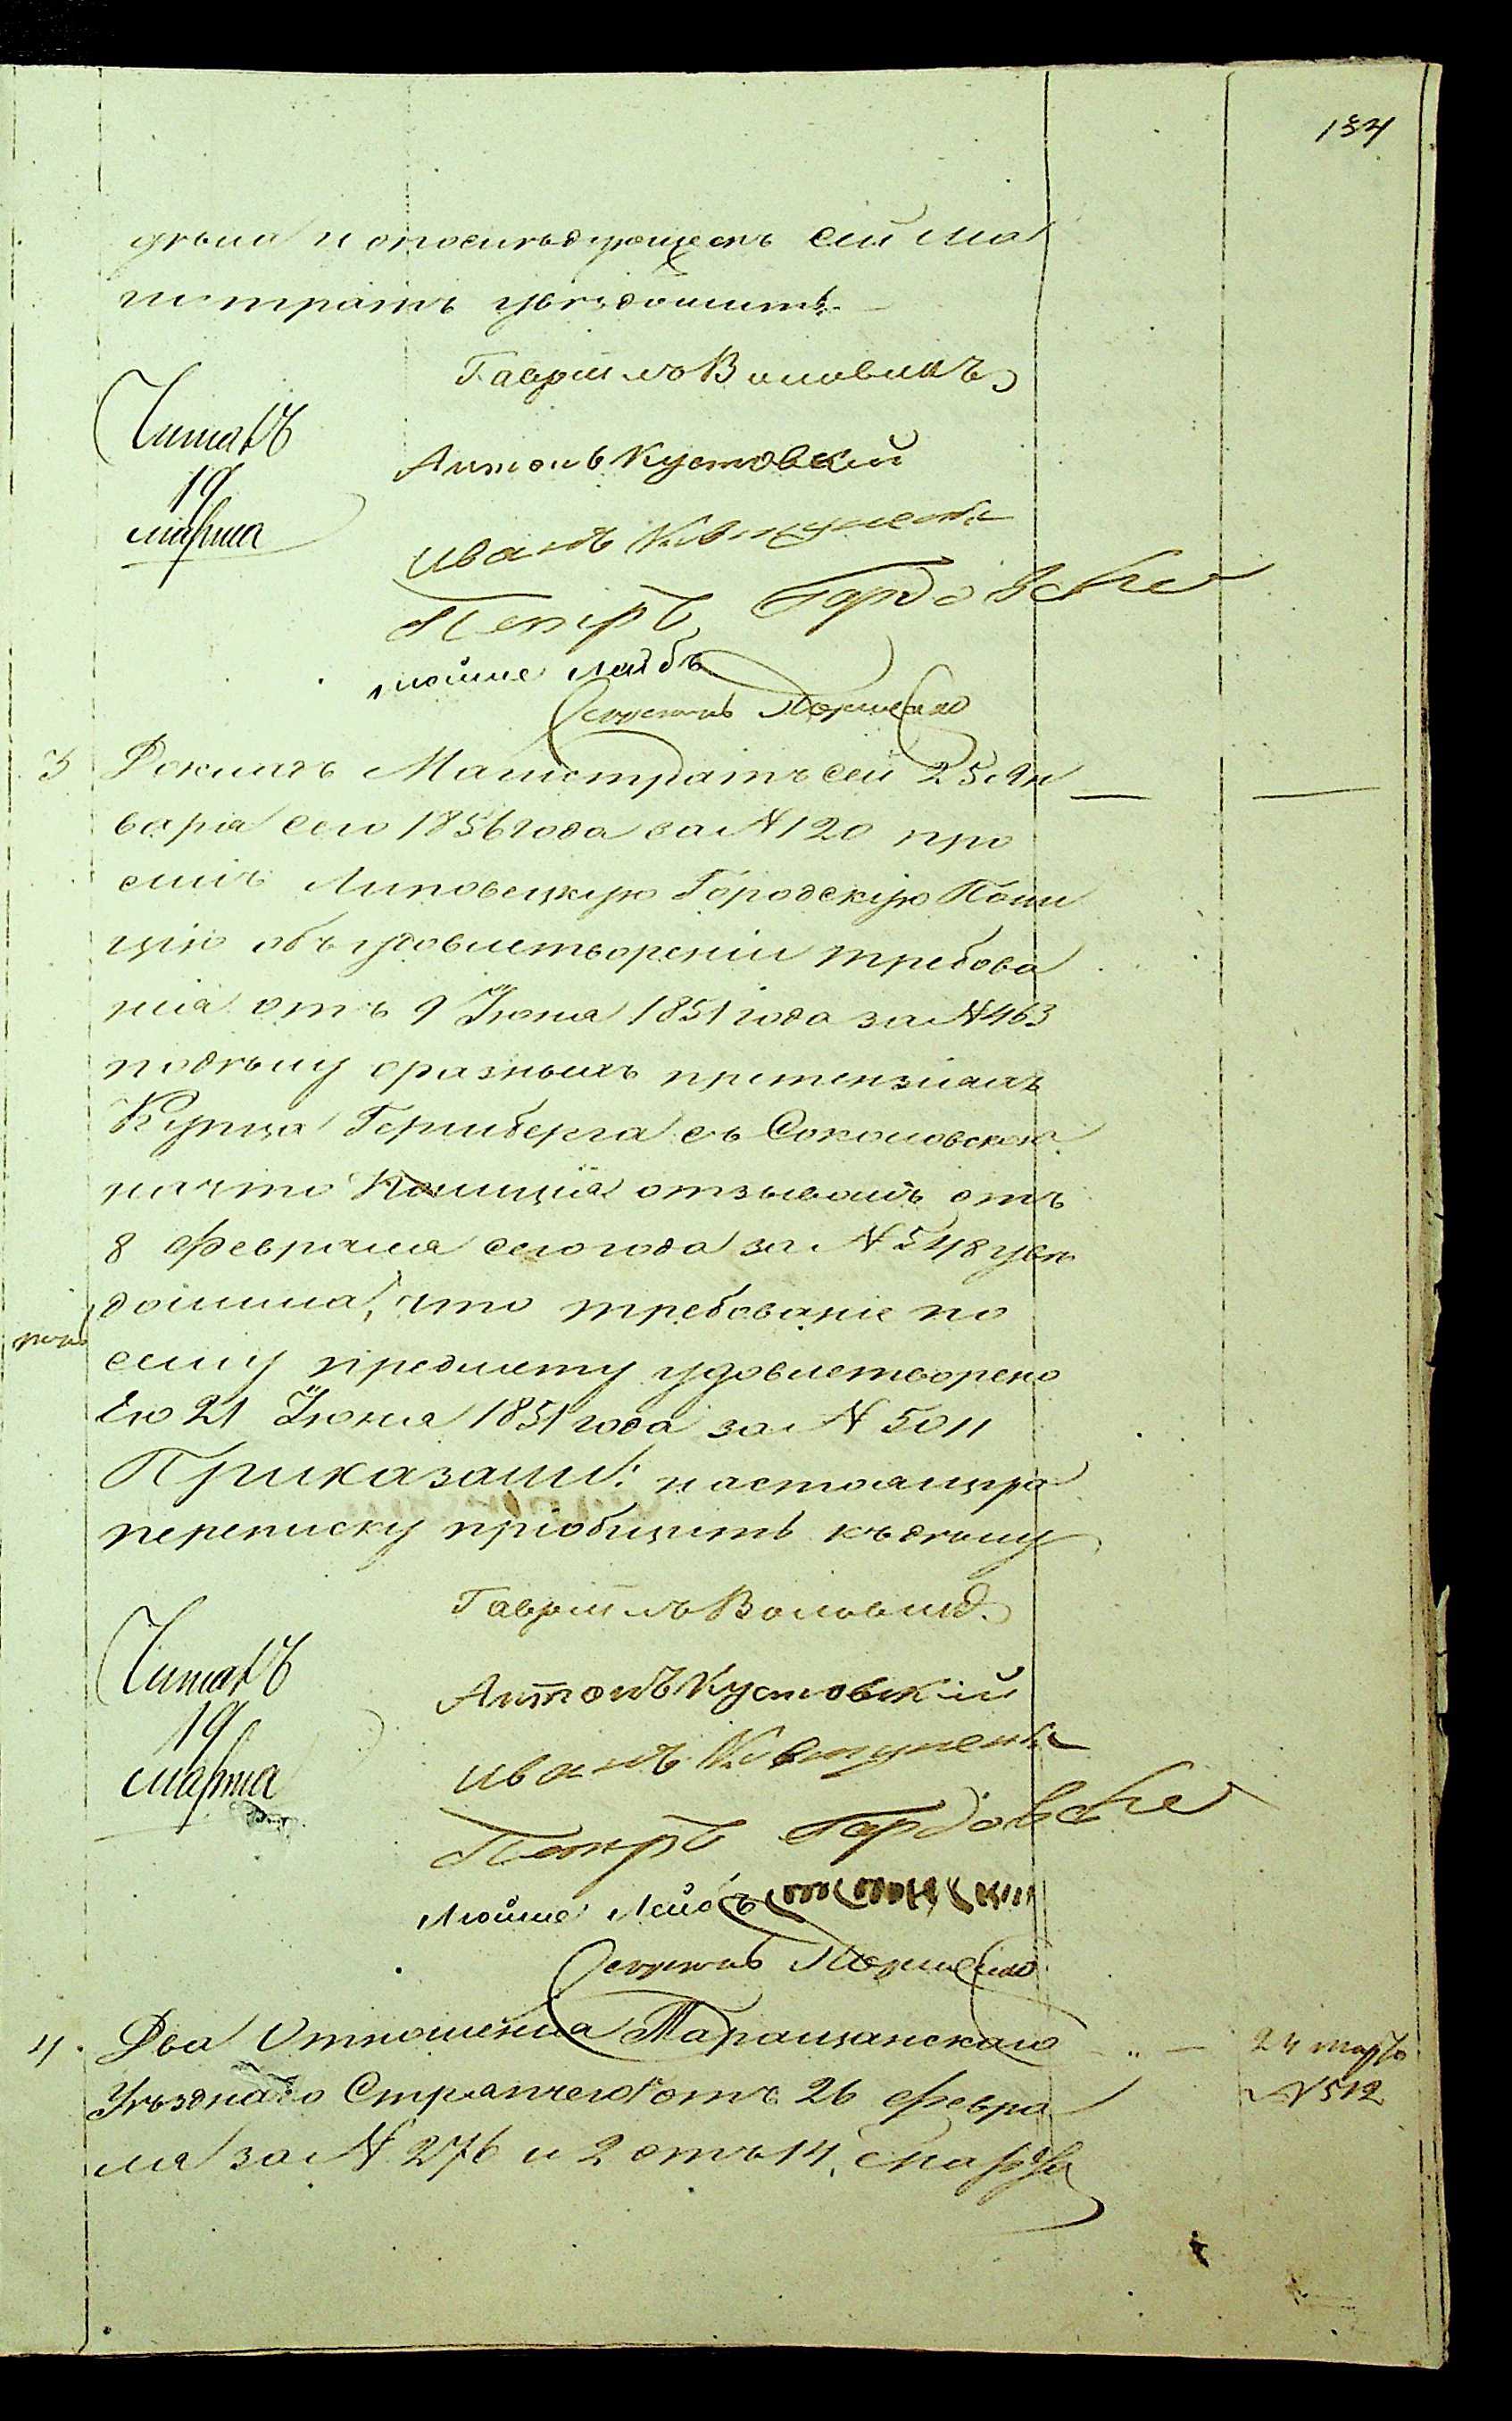 134
дѣла и опослѣдующемъ сей Ма
гистратъ увѣдомить.
Гавріилъ Воловикъ
Читалъ
19
марта
Антонъ Кустовскій
Иванъ
Петръ
Мойше Лейбъ
Секретарь
3 Докладъ Магистратъ сей 25 Ян
варя сего 1856 года за № 120 про
силъ Липовецкую Городскую Поли
цію объ удовлетвореніи требова
нія отъ 9 Іюня 1851 года за № 463
подѣлу оразныхъ претензіяхъ
Купца Гершберга съ Соколовскою
начто Полиція отзывомъ отъ
8 февраля сего года за № 548 увѣ
домила, что требованіе по
сему предмету удовлетворено
Ею 21 Іюня 1851 года за № 5011
Приказали: настоящую
переписку пріобщить къдѣлу
Гавріилъ Воловикъ
Читалъ
19
марта
Антонъ Кустовскій
Иванъ
Петръ
Мойше Лейбъ
Секретарь
4. Два Отношенія Таращанскаго 24 марта
Уѣзднаго Стряпчего отъ 26 февра № 512
ля за № 276 и 2 отъ 14 марта